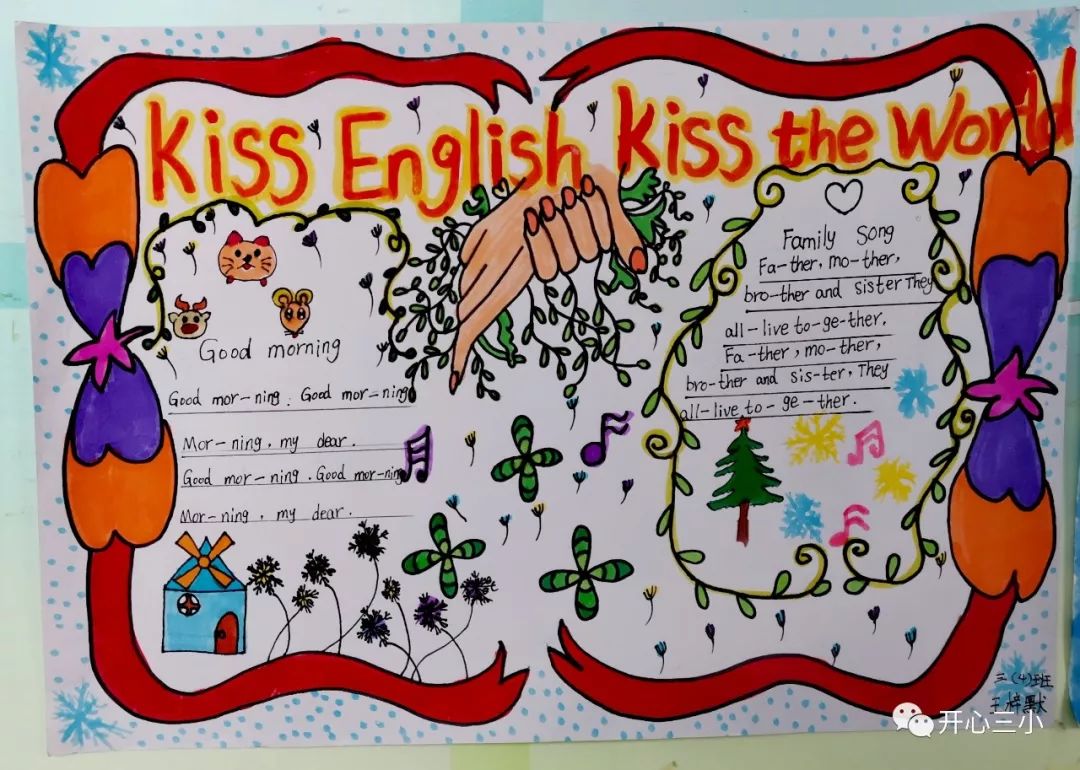 Kiss English Kiss the World
Good morning
Good mor-ning. Good mor-ning
Mor-ning, my dear.
Good mor-ning. Good mor-ning
Mor-ning, my dear.
Family Song
Fa-ther, mo-ther,
bro-ther and sister They
all-live to-ge-ther.
Fa-ther, mo-ther,
bro-ther and sis-ter, They
all-live to-ge-ther.
三(4)班
王梓默
开心三小